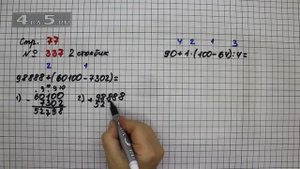 4aл5.ru
Стр. 77
№ 337 2 столбик
2 1
98888+(60100-7302)=
1) - 60100
7302
52798
2) + 98888
52
4 2 1 3
90+1·(100-64):4=